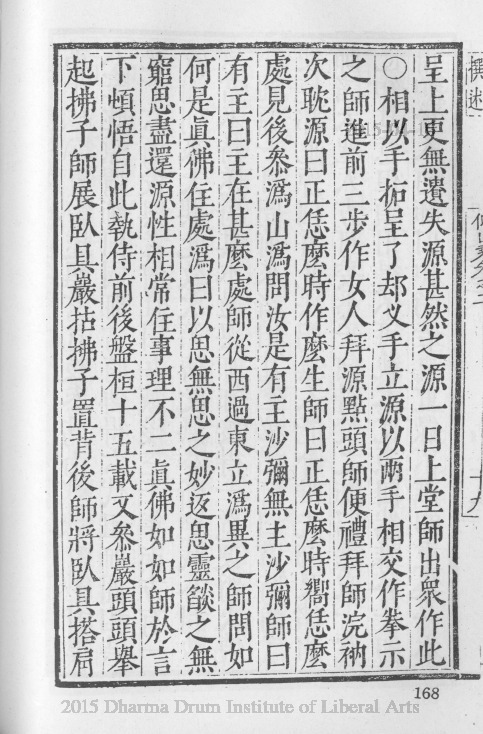 呈上更無遺失源甚然之源一日上堂師出衆作此
〇相以手拓呈了却叉手立源以兩手相交作拳示
之師進前三步作女人拜源點頭師便禮拜師浣衲
次耽源曰正恁麼時作麼生師曰正恁麼時嚮恁麼
處見後參溈山溈問汝是有主沙彌無主沙彌師曰
有主曰主在甚麼處師從西過東立溈異之師問如
何是眞佛住處溈曰以思無思之妙返思靈燄之無
窮思盡還源性相常住事理不二眞佛如如師於言
下頓悟自此執侍前後盤桓十五載又參巖頭頭舉
起拂子師展臥具巖拈拂子置背後師將臥具搭肩
168
2015 Dharma Drum Institute of Liberal Arts